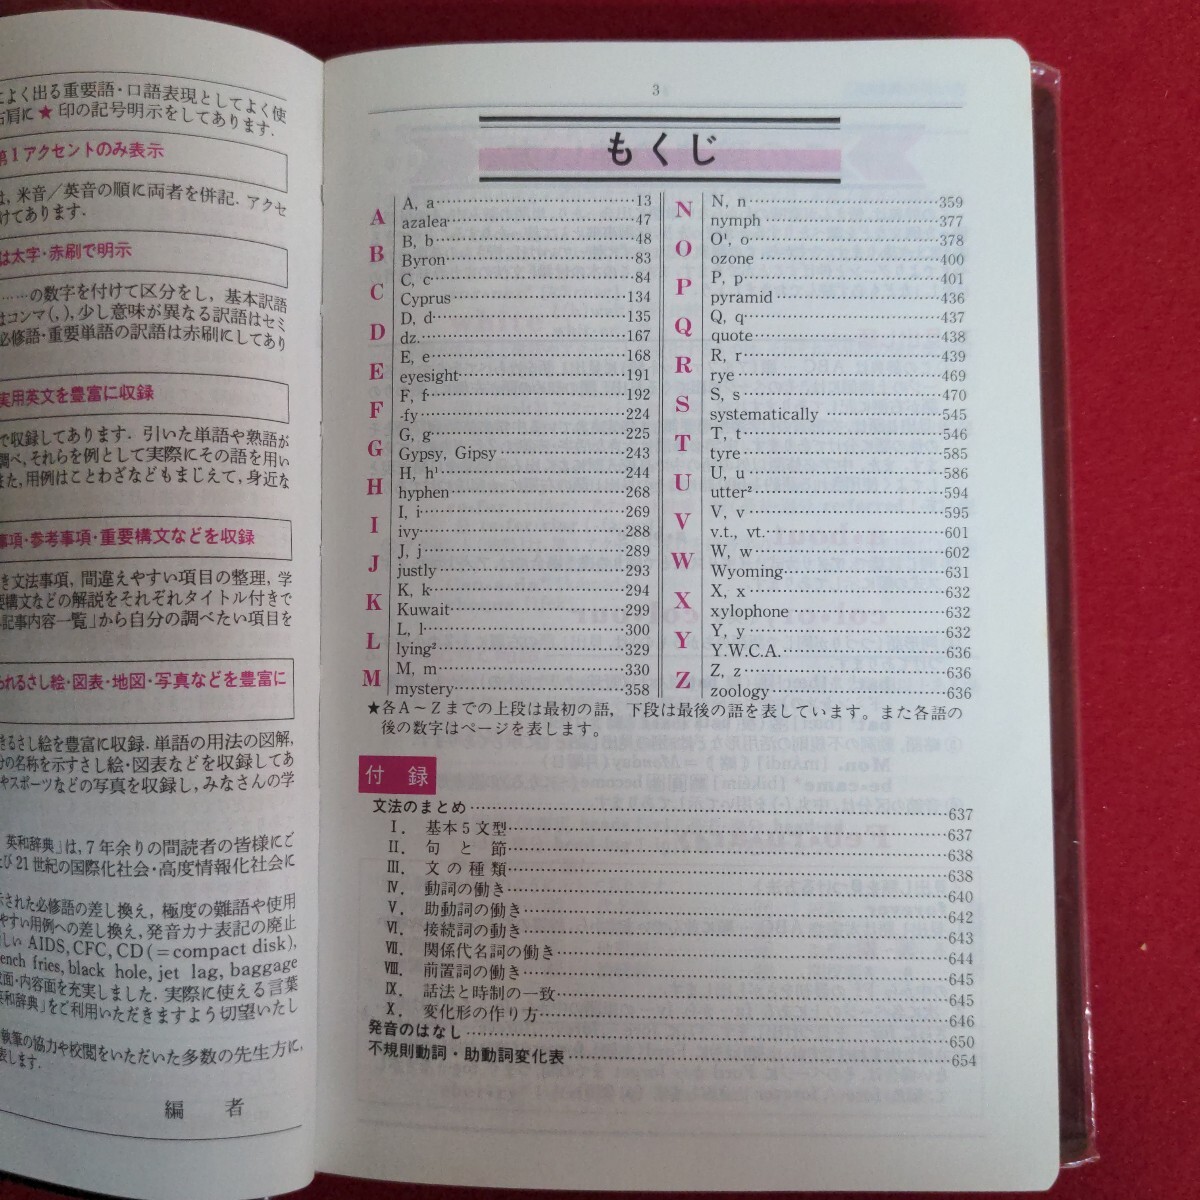 よく出る重要語・口語表現としてよく使
右肩に★印の記号明示をしてあります.
第1アクセントのみ表示
は, 米音／英音の順に両者を併記. アクセ
けてあります.
は太字・赤刷で明示
……の数字を付けて区分をし, 基本訳語
はコンマ(,), 少し意味が異なる訳語はセミ
必修語・重要単語の訳語は赤刷にしてあり
実用英文を豊富に収録
で収録してあります. 引いた単語や熟語が
調べ, それらを例として実際にその語を用い
また, 用例はことわざなどもまじえて, 身近な
事項・参考事項・重要構文などを収録
き文法事項, 間違えやすい項目の整理, 学
要構文などの解説をそれぞれタイトル付きで
記事内容一覧」から自分の調べたい項目を
われるさし絵・図表・地図・写真などを豊富に
きるさし絵を豊富に収録. 単語の用法の図解,
分の名称を示すさし絵・図表などを収録してあ
やスポーツなどの写真を収録し, みなさんの学
英和辞典」は, 7年余りの間読者の皆様にご
び21世紀の国際化社会・高度情報化社会に
示された必修語の差し換え, 極度の難語や使用
やすい用例への差し換え, 発音カナ表記の廃止
しい AIDS, CFC, CD (=compact disk),
ench fries, black hole, jet lag, baggage
面・内容面を充実しました. 実際に使える言葉
英和辞典」をご利用いただきますよう切望いたし
執筆の協力や校閲をいただいた多数の先生方に,
表します.
編 者
3
もくじ
A
A, a……13
azalea……47
B
B, b……48
Byron……83
C
C, c……84
Cyprus……134
D
D, d……135
dz.……167
E
E, e……168
eyesight……191
F
F, f……192
-fy……224
G
G, g……225
Gypsy, Gipsy……243
H
H, h¹……244
hyphen……268
I
I, i……269
ivy……288
J
J, j……289
justly……293
K
K, k……294
Kuwait……299
L
L, l……300
lying²……329
M
M, m……330
mystery……358
N
N, n……359
nymph……377
O
O¹, o……378
ozone……400
P
P, p……401
pyramid……436
Q
Q, q……437
quote……438
R
R, r……439
rye……469
S
S, s……470
systematically……545
T
T, t……546
tyre……585
U
U, u……586
utter²……594
V
V, v……595
v.t., vt.……601
W
W, w……602
Wyoming……631
X
X, x……632
xylophone……632
Y
Y, y……632
Y.W.C.A.……636
Z
Z, z……636
zoology……636
★各A～Zまでの上段は最初の語, 下段は最後の語を表しています。また各語の
後の数字はページを表します。
付 録
文法のまとめ……637
Ⅰ. 基本5文型……637
Ⅱ. 句と節……638
Ⅲ. 文の種類……638
Ⅳ. 動詞の働き……640
Ⅴ. 助動詞の働き……642
Ⅵ. 接続詞の働き……643
Ⅶ. 関係代名詞の働き……644
Ⅷ. 前置詞の働き……645
Ⅸ. 話法と時制の一致……645
Ⅹ. 変化形の作り方……646
発音のはなし……650
不規則動詞・助動詞変化表……654